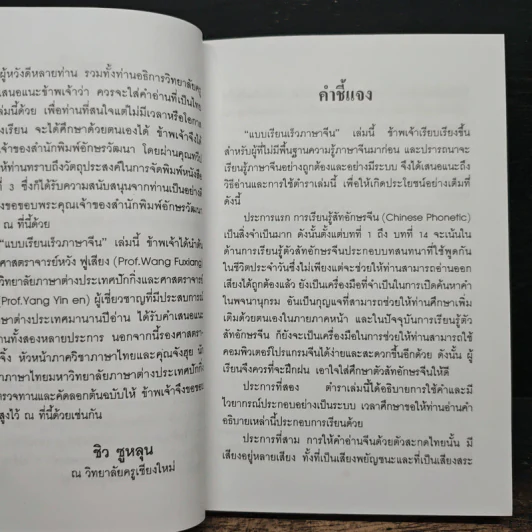 ผู้หวังดีหลายท่าน รวมทั้งท่านอธิการวิทยาลัยครู
เสนอแนะข้าพเจ้าว่า ควรจะใส่คำอ่านที่เป็นไทย
เล่มนี้ด้วย เพื่อท่านที่สนใจแต่ไม่มีเวลาหรือโอกาส
งเรียน จะได้ศึกษาด้วยตนเองได้ ข้าพเจ้าจึงได้
ของสำนักพิมพ์อักษรวัฒนา โดยผ่านคุณทวีป
ให้ท่านทราบถึงวัตถุประสงค์ในการจัดพิมพ์หนังสือ
ที่ 3 ซึ่งก็ได้รับความสนับสนุนจากท่านเป็นอย่างดี
งขอขอบพระคุณเจ้าของสำนักพิมพ์อักษรวัฒนา
ณ ที่นี้ด้วย
"แบบเรียนเร็วภาษาจีน" เล่มนี้ ข้าพเจ้าได้นำต้น
จารย์หวัง ฟูเสียง (Prof.Wang Fuxiang)
วิทยาลัยภาษาต่างประเทศปักกิ่งและศาสตราจารย์
(Prof.Yang Yin en) ผู้เชี่ยวชาญที่มีประสบการณ์
ษาต่างประเทศมานานปีอ่าน ได้รับคำเสนอแนะ
านทั้งสองหลายประการ นอกจากนี้รองศาสตรา-
จิ้ง หัวหน้าภาควิชาภาษาไทยและคุณจังฮุย นัก
าภาษาไทยมหาวิทยาลัยภาษาต่างประเทศปักกิ่ง
ตรวจทานและคัดลอกต้นฉบับให้ ข้าพเจ้าจึงขอขอบ
สูงไว้ ณ ที่นี้ด้วยเช่นกัน
ชิว ซูหลุน
ณ วิทยาลัยครูเชียงใหม่
คำชี้แจง
"แบบเรียนเร็วภาษาจีน" เล่มนี้ ข้าพเจ้าเรียบเรียงขึ้น
สำหรับผู้ที่ไม่มีพื้นฐานความรู้ภาษาจีนมาก่อน และปรารถนาจะ
เรียนรู้ภาษาจีนอย่างถูกต้องและอย่างมีระบบ จึงได้เสนอแนะถึง
วิธีอ่านและการใช้ตำราเล่มนี้ เพื่อให้เกิดประโยชน์อย่างเต็มที่
ดังนี้
ประการแรก การเรียนรู้สัทอักษรจีน (Chinese Phonetic)
เป็นสิ่งจำเป็นมาก ดังนั้นตั้งแต่บทที่ 1 ถึง บทที่ 14 จะเน้นใน
ด้านการเรียนรู้ตัวสัทอักษรจีนประกอบบทสนทนาที่ใช้พูดกัน
ในชีวิตประจำวันซึ่งไม่เพียงแต่จะช่วยให้ท่านสามารถอ่านออก
เสียงได้ถูกต้องแล้ว ยังเป็นเครื่องมือที่จำเป็นในการเปิดค้นหาคำ
ในพจนานุกรม อันเป็นกุญแจที่สามารถช่วยให้ท่านศึกษาเพิ่ม
เติมด้วยตนเองในภายภาคหน้า และในปัจจุบันการเรียนรู้ตัว
สัทอักษรจีน ก็ยังจะเป็นเครื่องมือในการช่วยให้ท่านสามารถใช้
คอมพิวเตอร์โปรแกรมจีนได้ง่ายและสะดวกขึ้นอีกด้วย ดังนั้น ผู้
เรียนจึงควรที่จะฝึกฝน เอาใจใส่ศึกษาตัวสัทอักษรจีนให้ดี
ประการที่สอง ตำราเล่มนี้ได้อธิบายการใช้คำและมี
ไวยากรณ์ประกอบอย่างเป็นระบบ เวลาศึกษาขอให้ท่านอ่านคำ
อธิบายเหล่านี้ประกอบการเรียนด้วย
ประการที่สาม การให้คำอ่านจีนด้วยตัวสะกดไทยนั้น มี
เสียงอยู่หลายเสียง ทั้งที่เป็นเสียงพยัญชนะและที่เป็นเสียงสระ